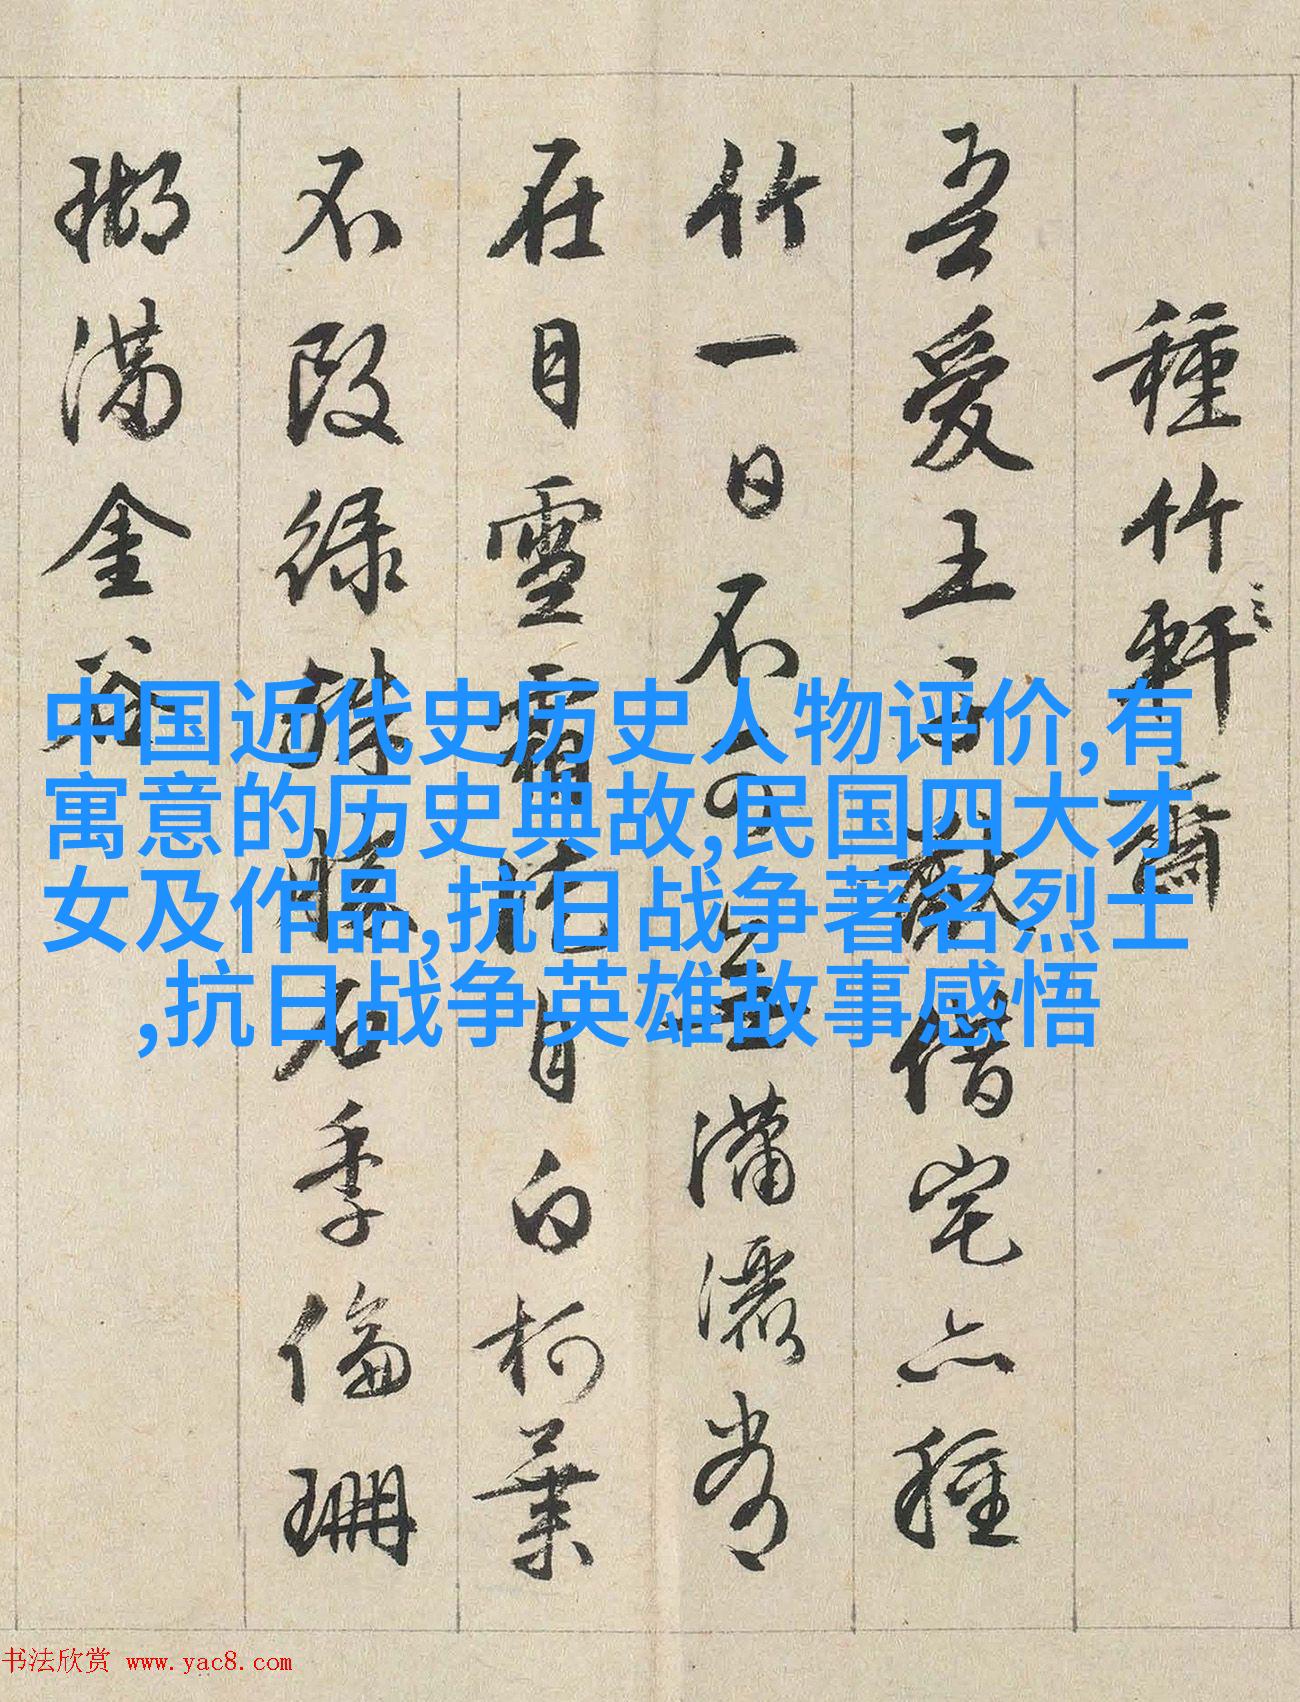 種竹軒齋
吾愛王子猷借宅亦種
竹一日不可無瀟灑常
在目雪霜徒自白柯葉
不改綠殊勝石季倫珊
瑚滿金谷
中国近代史历史人物评价,有
寓意的历史典故,民国四大才
女及作品,抗日战争著名烈士
,抗日战争英雄故事感悟
书法欣赏 www.yac8.com